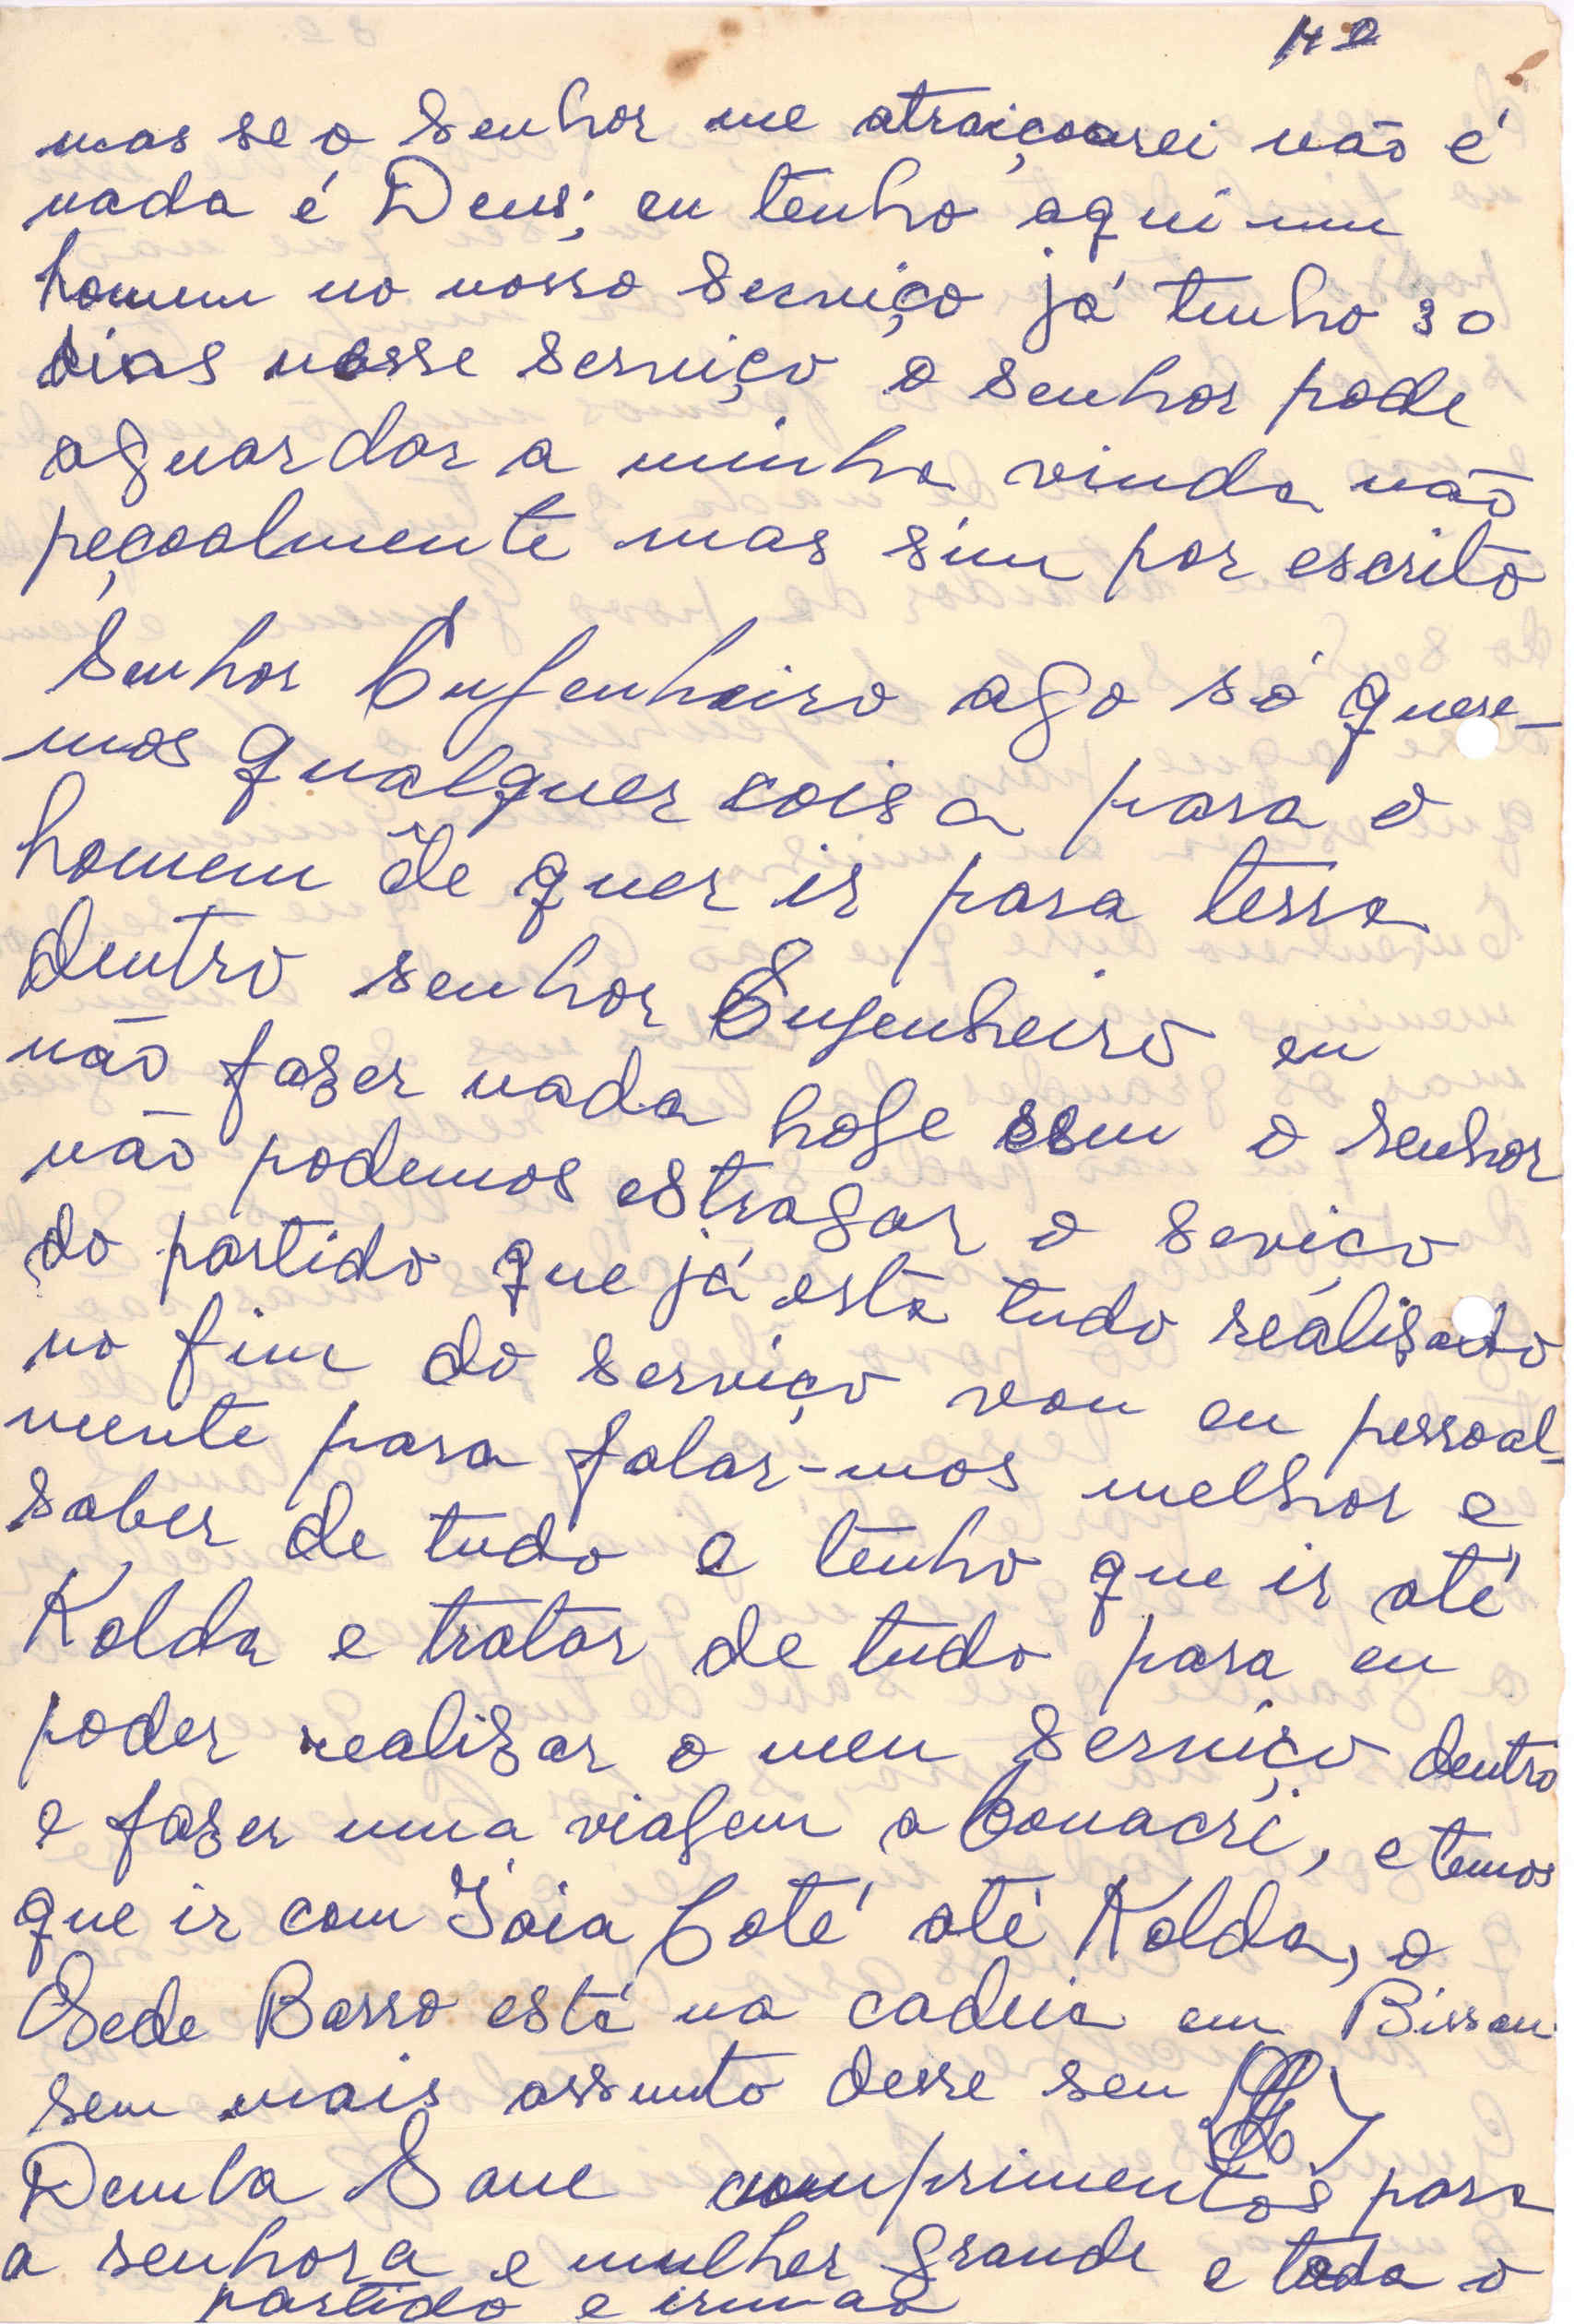 mas se o Senhor me atraiçoarei não é
nada é Deus; eu tenho aqui um
homem no nosso serviço já tenho 30
dias nesse serviço o senhor pode
aguardar a minha vinda não
peçoalmente mas sim por escrito
Senhor Engenheiro ago só quere-
mos qualquer coisa para o
homem êle quer ir para terra
dentro senhor Engenheiro eu
não fazer nada hoje sem o senhor
não podemos estragar o seviço
do partido que já esta tudo reálisado
no fim do serviço vou eu pessoal-
mente para falar-mos melhor e
saber de tudo e tenho que ir até
Kolda e tratar de tudo para eu
poder realizar o meu serviço dentro
e fazer uma viagem a Conacri, e temos
que ir com Iáia Coté até Kolda, o
Sede Barro esté na cadeia em Bissau
sem mais assunto desse seu
Demba Sane comprimentos para
a senhora e mulher grande e toda o
partido e irmão